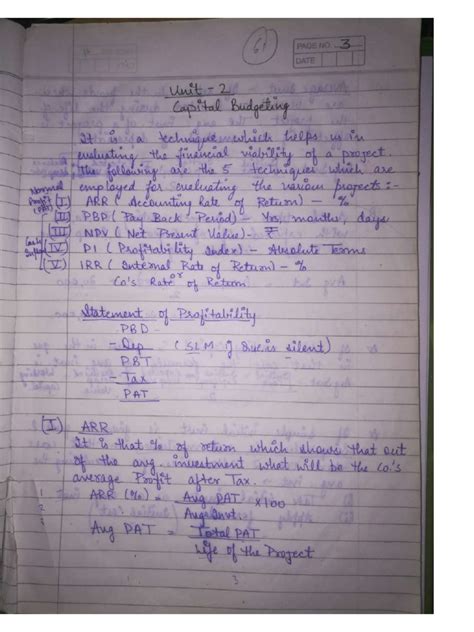 6
PAGE NO. 3
DATE
Unit - 2
Capital Budgeting
It is a technique which helps us in
evaluating the financial viability of a project.
The following are the 5 techniques which are
employed for evaluating the various projects :-
Normal Profit (PAT) (I) ARR (Accounting Rate of Return) - %
(II) PBP (Pay Back Period) - Yrs, months, days
Cash Inflow (III) NPV (Net Present Value) - ₹
(IV) PI (Profitability Index) - Absolute Terms
(V) IRR (Internal Rate of Return) - %
or
Co's Rate of Return
Statement of Profitability
PBD
- Dep (SLM if Ques is silent)
PBT
- Tax
PAT
(I) ARR
It is that % of return which shows that out
of the avg. investment what will be the Co's
average Profit after Tax.
1 ARR (%) = Avg PAT x100
2 Avg Invt.
3 Avg PAT = Total PAT
Life of the Project
3